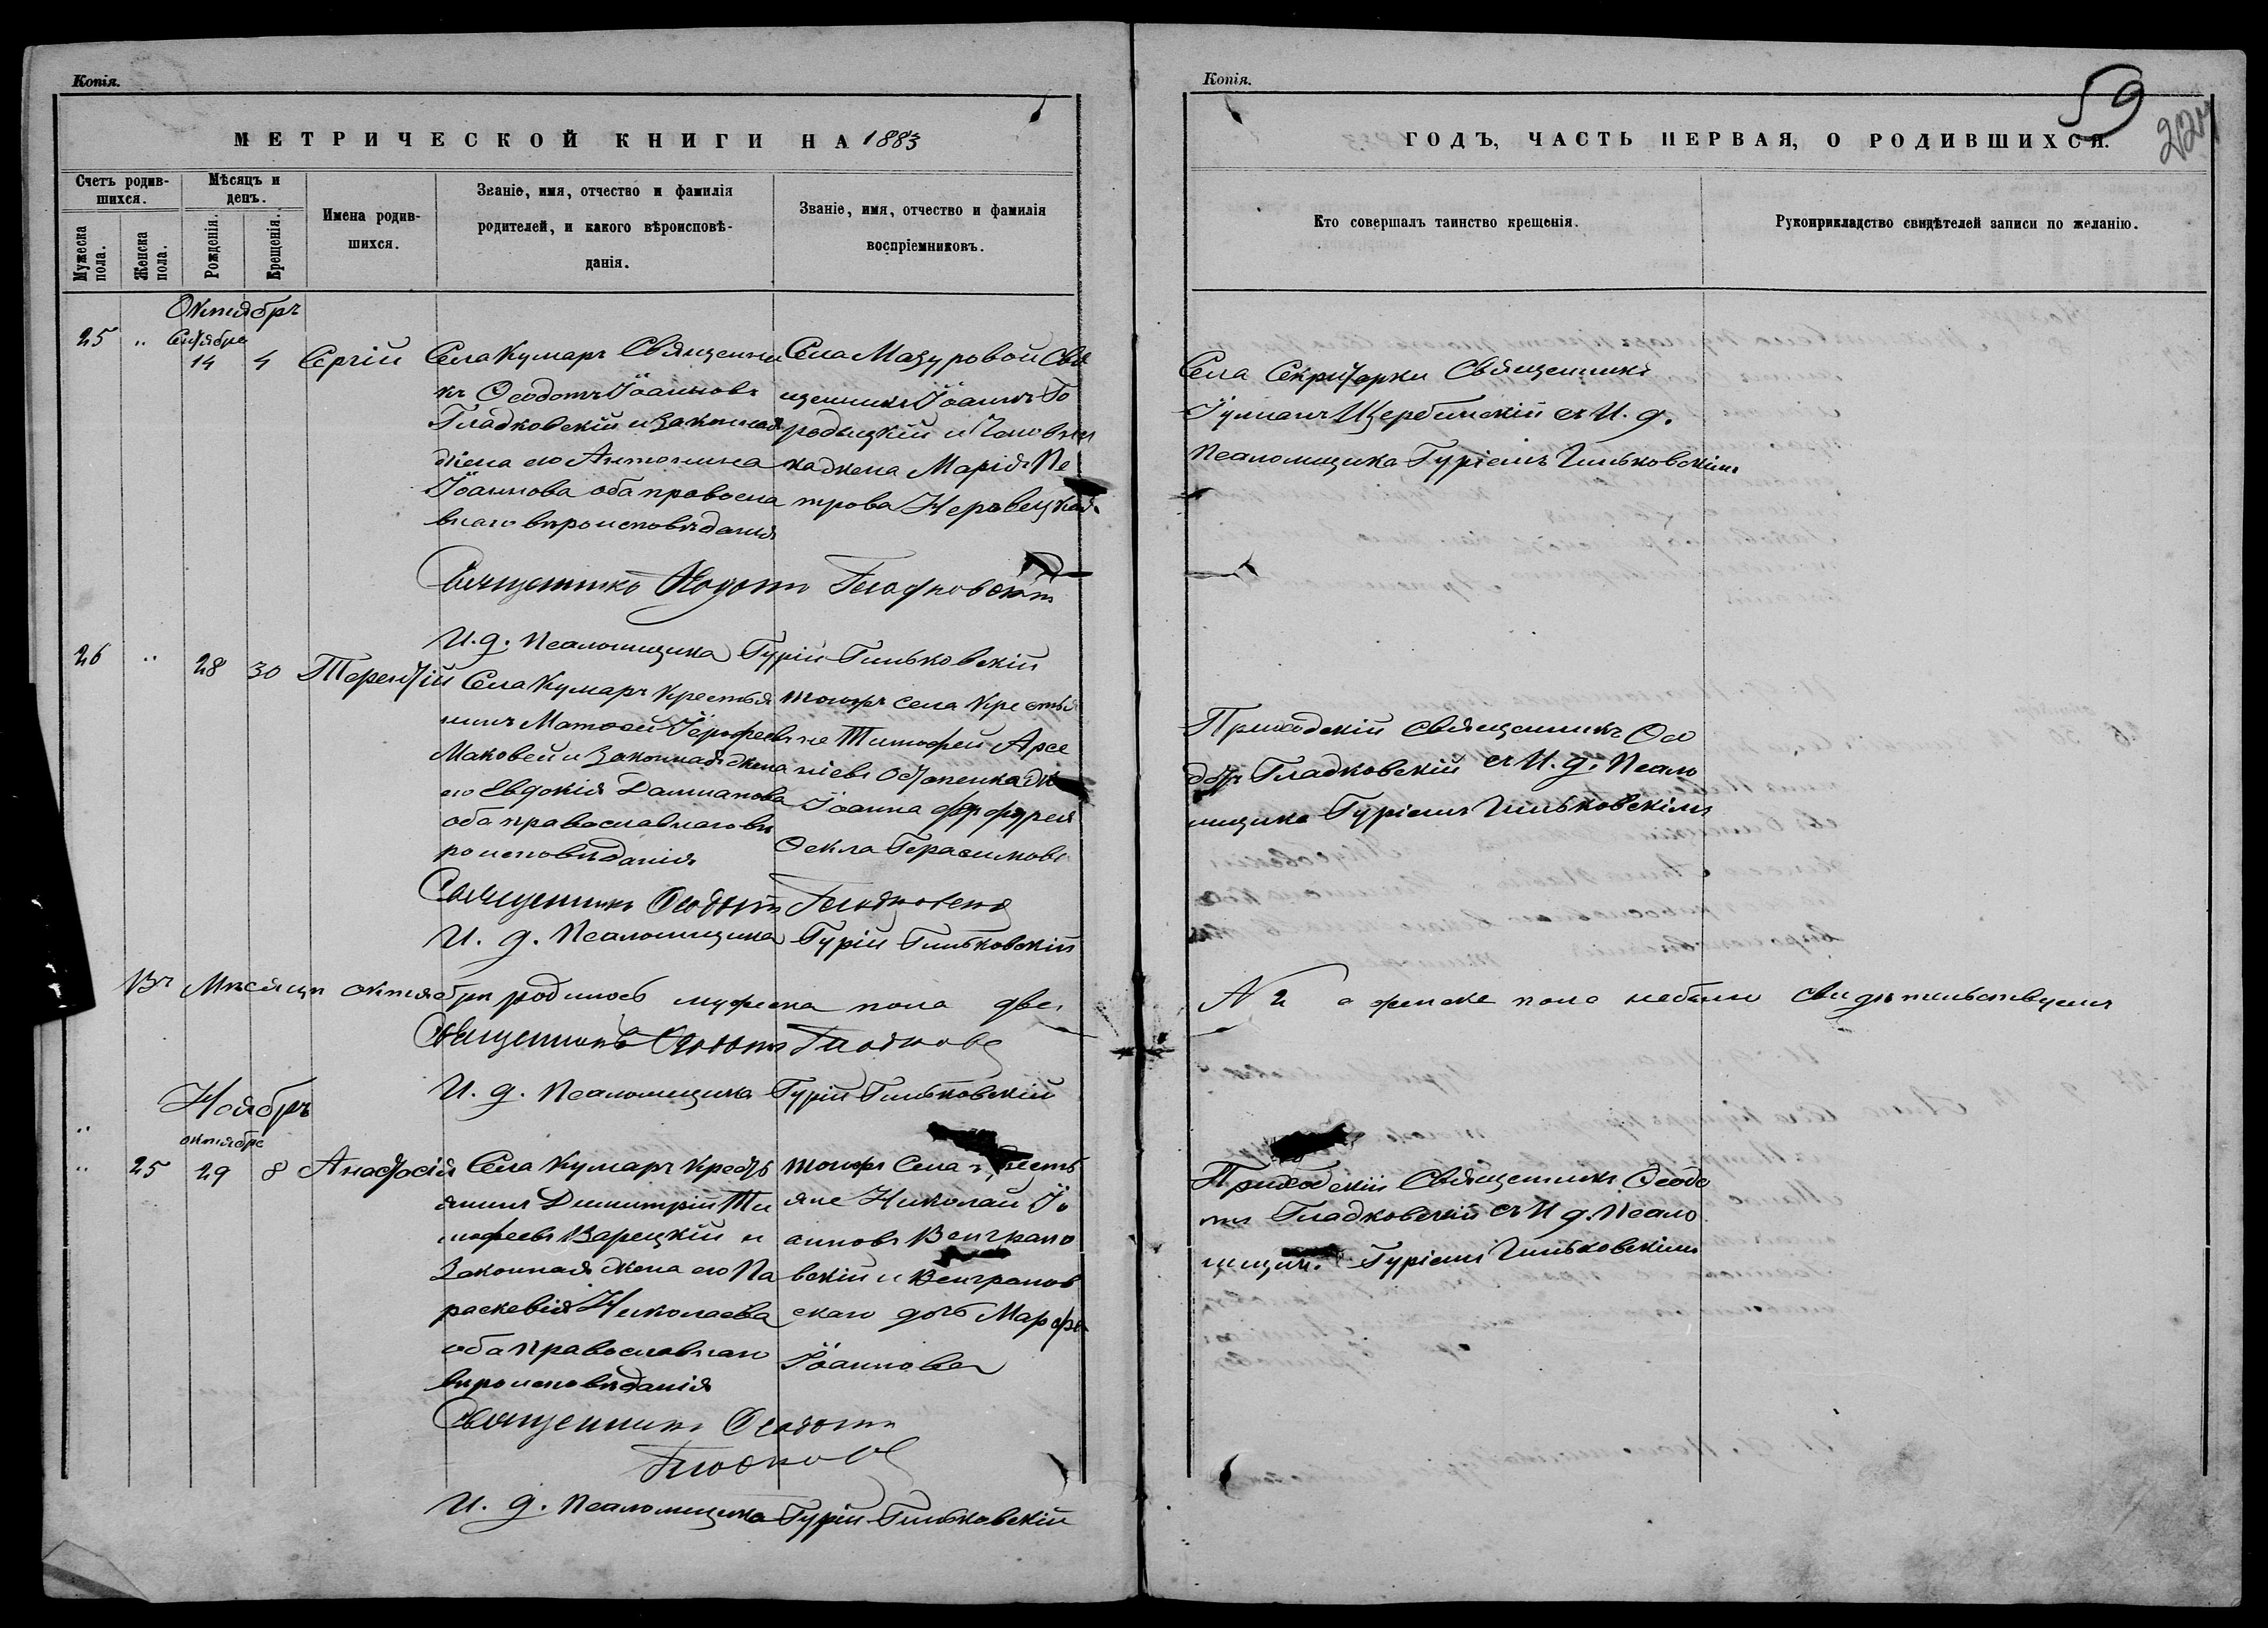 Копія.
МЕТРИЧЕСКОЙ КНИГИ НА 1883
Счетъ родив-
шихся.
Мѣсяцъ и
день.
Мужеска
пола.
Женска
пола.
Рожденія.
Крещенія.
Имена родив-
шихся.
Званіе, имя, отчество и фамилія
родителей, и какого вѣроисповѣ-
данія.
Званіе, имя, отчество и фамилія
воспріемниковъ.
Октябрь
Сентября
25 „ 14 4 Сергій
Села Кумаръ Священни
къ Ѳеодотъ Іоанновъ
Гладковскій и законная
жена его Антонина
Іоаннова оба правосла
внаго вѣроисповѣданія
Села Мазуровой Свя
щенникъ Іоаннъ Го
родецкій и
жена Марія Пе
трова
Священникъ Ѳеодотъ Гладковскій
И. д. Псаломщика Гурій Гиньковскій
26 „ 28 30 Терентій
Села Кумаръ крестья
нинъ Матѳей Іерофеевъ
Маковей и законная жена
его Евдокія Даміанова
оба православнаго вѣ
роисповѣданія
тогожъ села крестья
не Тимофей Арсе
ніевъ
Іоанна
Ѳекла Герасимова
Священникъ Ѳеодотъ Гладковскій
И. д. Псаломщика Гурій Гиньковскій
Въ Мѣсяцѣ октябрѣ родилось мужеска пола два
Священникъ Ѳеодотъ Гладковск
И. д. Псаломщика Гурій Гиньковскій
Ноябрь
„
октября
„ 25 29 8 Анастасія
Села Кумаръ Кресть
янинъ Димитрій Ти
мофеевъ Варецкій и
законная жена его Па
раскевія Николаева
оба православнаго
вѣроисповѣданія
тогожъ Села кресть
яне Николай Іо
анновъ Венграно
вскій и Венгранов
скаго дочь Марфа
Іоаннова
Священникъ Ѳеодотъ
Гладковс
И. д. Псаломщика Гурій Гиньковскій
Копія.
59
224
ГОДЪ, ЧАСТЬ ПЕРВАЯ, О РОДИВШИХСЯ.
Кто совершалъ таинство крещенія.
Рукоприкладство свидѣтелей записи по желанію.
Села Секритарки Священникъ
Іуліанъ Щербинскій съ И. д.
Псаломщика Гуріемъ Гиньковскимъ
Приходскій священникъ Ѳео
дотъ Гладковскій съ И. д. Псало
мщика Гуріемъ Гиньковскимъ
N 2 а женска пола небыло свидѣтельствуемъ
Приходскій Священникъ Ѳеодо
тъ Гладковскій съ И д. Псало
мщик. Гуріемъ Гиньковскимъ